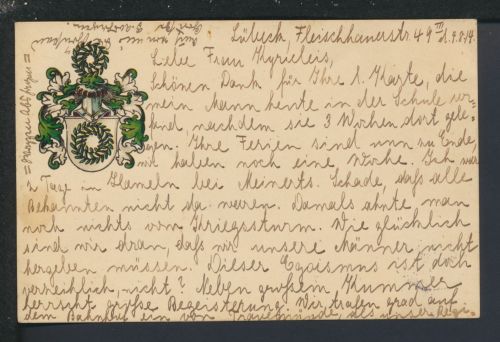 Lübeck, Fleischhauerstr. 49 III d. 9.8.14.
Liebe Frau Kyrieleis,
Schönen Dank für Ihre l. Karte, die
mein Mann heute in der Schule vor-
fand, nachdem sie 3 Wochen dort gele-
gen. Ihre Ferien sind nun zu Ende,
wir haben noch eine Woche. Ich war
2 Tage in Hameln bei Meinerts. Schade, daß alle
Bekannten nicht da waren. Damals ahnte man
noch nichts vom Kriegssturm. Wie glücklich
sind wir dran, daß wir unsere Männer nicht
hergeben müssen. Dieser Egoismus ist doch
verzeihlich, nicht? Neben großem Kummer
herrscht große Begeisterung. Wir trafen grad auf
dem Bahnhof ein von Travemünde, als unser Regi-